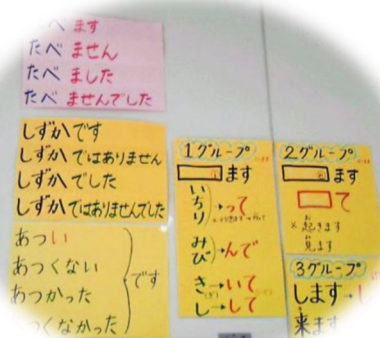 たべます
たべません
たべました
たべませんでした
しずかです
しずかではありません
しずかでした
しずかではありませんでした
あつい
あつくない
あつかった
つくなかった
です
1グループ
ます
い
ち
り
→って
み
び
→んで
き→いて
し→して
2グループ
ます
て
※起きます
見ます
3グループ
します→
来ます